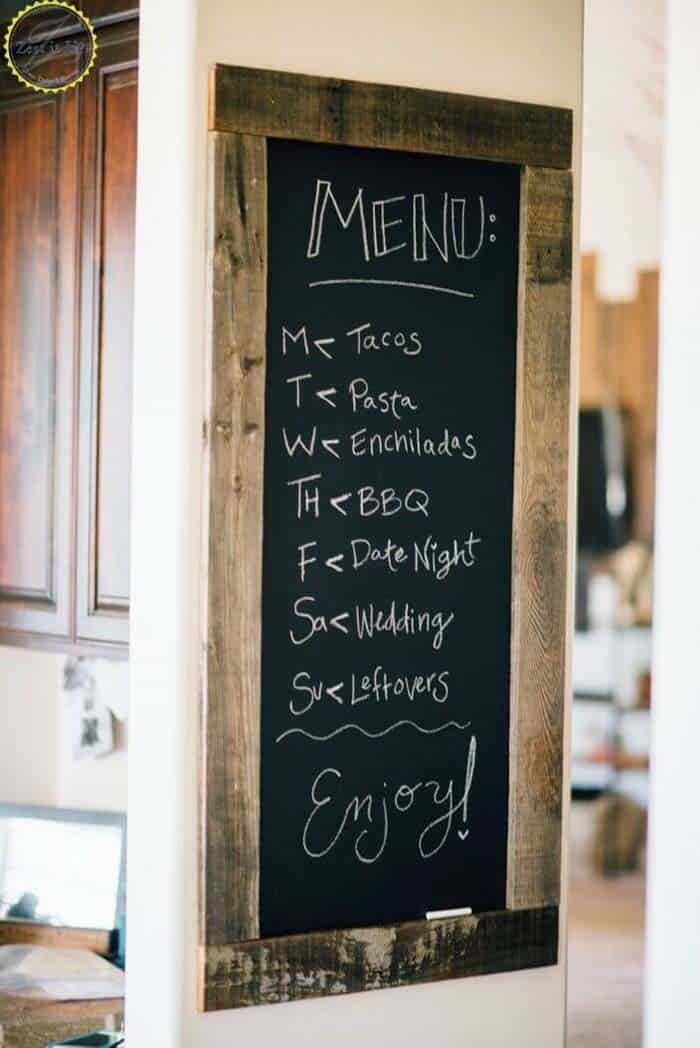 MENU:
M < Tacos
T < Pasta
W < Enchiladas
TH < BBQ
F < Date Night
Sa < Wedding
Su < Leftovers
Enjoy!